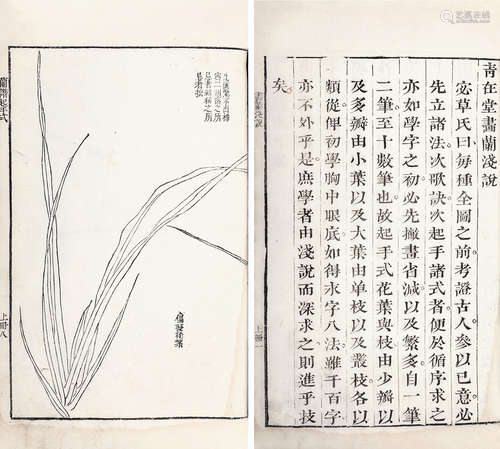 青在堂畫蘭淺說
宓草氏曰每種全圖之前考證古人參以已意必
先立諸法次歌訣次起手諸式者便於循序求之
亦如學字之初必先撇畫省減以及繁多自一筆
二筆至十數筆也故起手式花葉與枝由少瓣以
及多瓣由小葉以及大葉由单枝以及叢枝各以
類從俾初學胸中眼底如得永字八法雖千百字
亦不外乎是庶學者由淺說而深求之則進乎技
矣
上冊一
起手式
上冊八